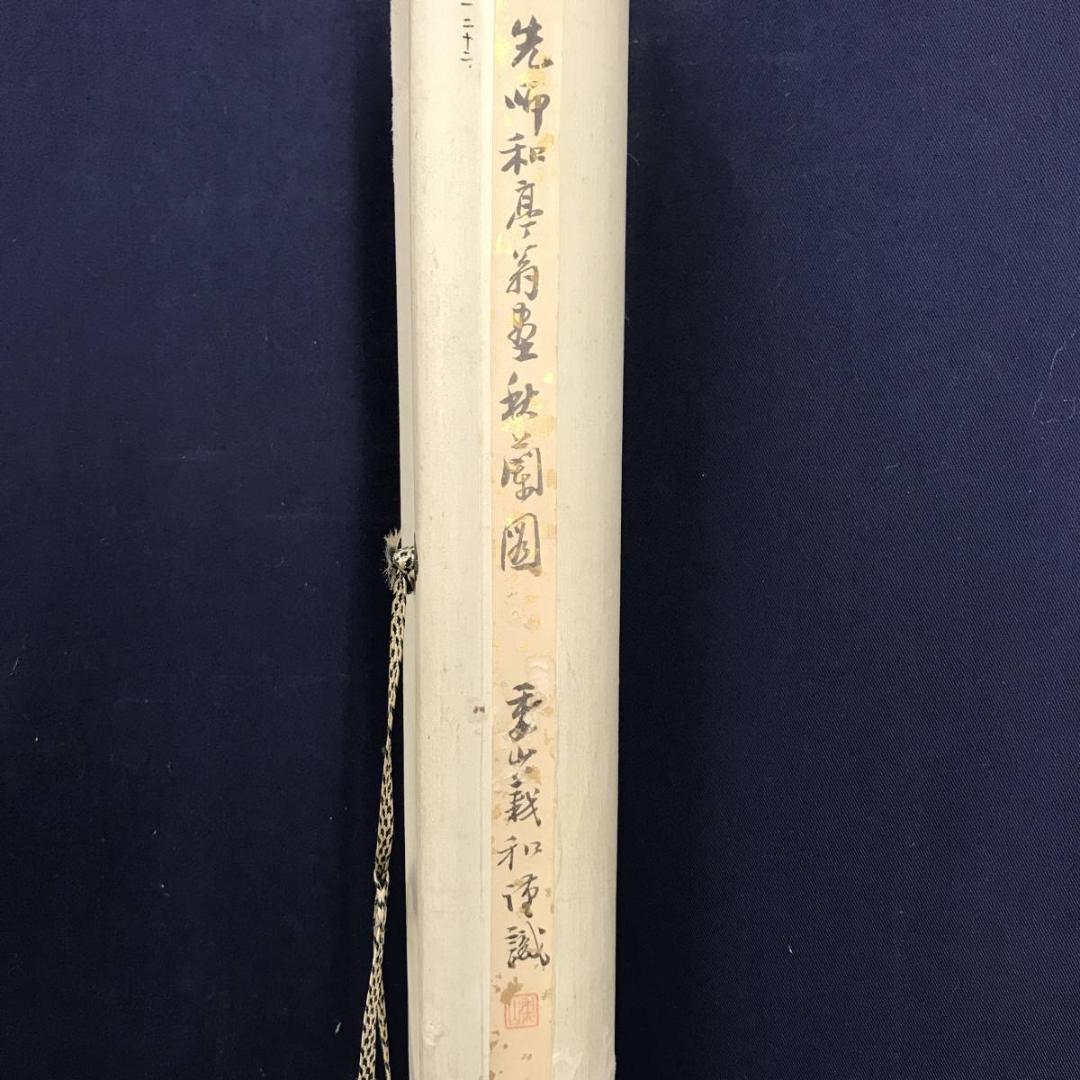 先師和亭翁畫秋蘭圖
山義和謹識
一二十二